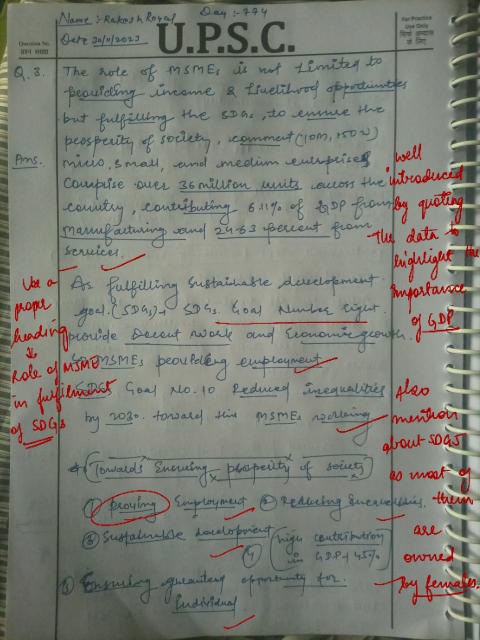 Name :- Rakesh Royal Day :- 774
Date 30/11/2023
U.P.S.C.
Question No.
प्रश्न संख्या
For Practice
Use Only
Q.3. The role of MSMEs is not limited to
providing income & livelihood opportunities
but fulfilling the SDGs, to ensure the
prosperity of society, comment (10M, 150W)
Ans. micro, small, and medium enterprises
comprise over 36 million units across the
country, contributing 6.11% of GDP from
manufacturing and 24.63 percent from
services.
well
introduced
by quoting
the data to
highlight the
importance
of GDP
As fulfilling sustainable development
goal (SDGs) SDGs Goal Number Eight
provide Decent work and Economic growth.
So MSMEs providing employment
SDGs Goal No. 10 Reduced inequalities
by 2030. toward this MSMEs working
Use a
proper
heading
Role of MSME
in fulfilment
of SDGs
Also
mention
about SDG5
as most of
them
are
owned
by females.
Towards Ensuring prosperity of society
① proving Employment ② Reducing
③ Sustainable development
④ high contribution
in GDP + 45%
⑤ Ensuring guaranted opportunity for
individual